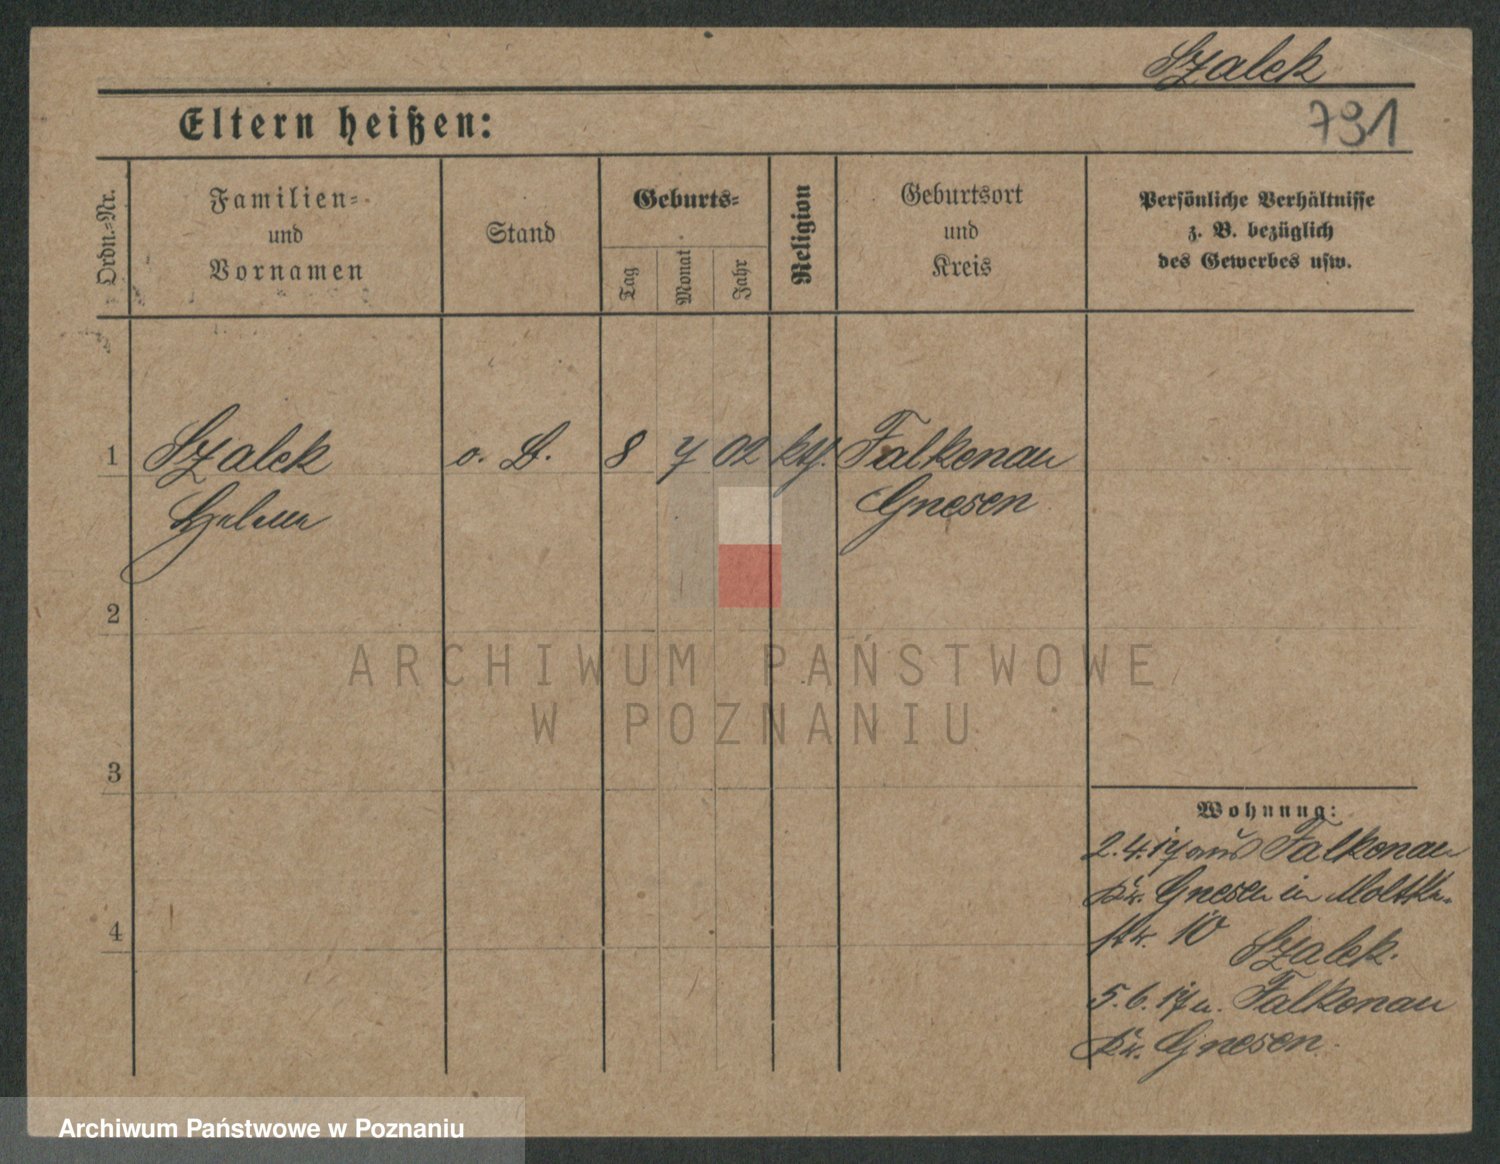 Szalek
Eltern heißen:
791
Ordn.-Nr.
Familien-
und
Vornamen
Stand
Geburts-
Tag
Monat
Jahr
Religion
Geburtsort
und
Kreis
Persönliche Verhältnisse
z. B. bezüglich
des Gewerbes usw.
1 Szalek o. B. 8 7 02 kth. Falkenau
Gnesen
2
ARCHIWUM PAŃSTWOWE
W POZNANIU
3
Wohnung:
2.4.17 aus Falkenau
Kr. Gnesen in Moltke-
4
str. 10 Szalek.
5.6.17 n. Falkenau
Kr. Gnesen.
Archiwum Państwowe w Poznaniu